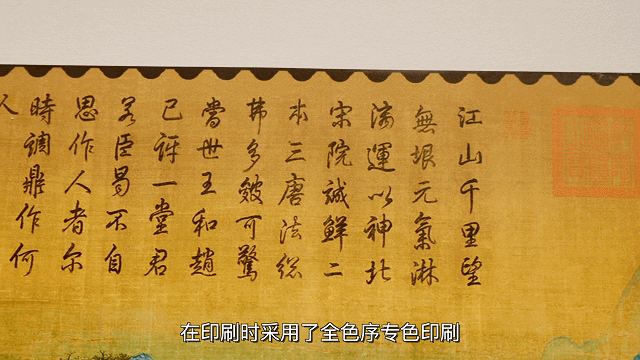 江山千里望
無垠元氣淋
漓運以神北
宋院誠鮮二
本三唐法総
弗多皴可驚
當世王和趙
已訝一堂君
若臣曷不自
思作人者尔
時調鼎作何
人
在印刷时采用了全色序专色印刷